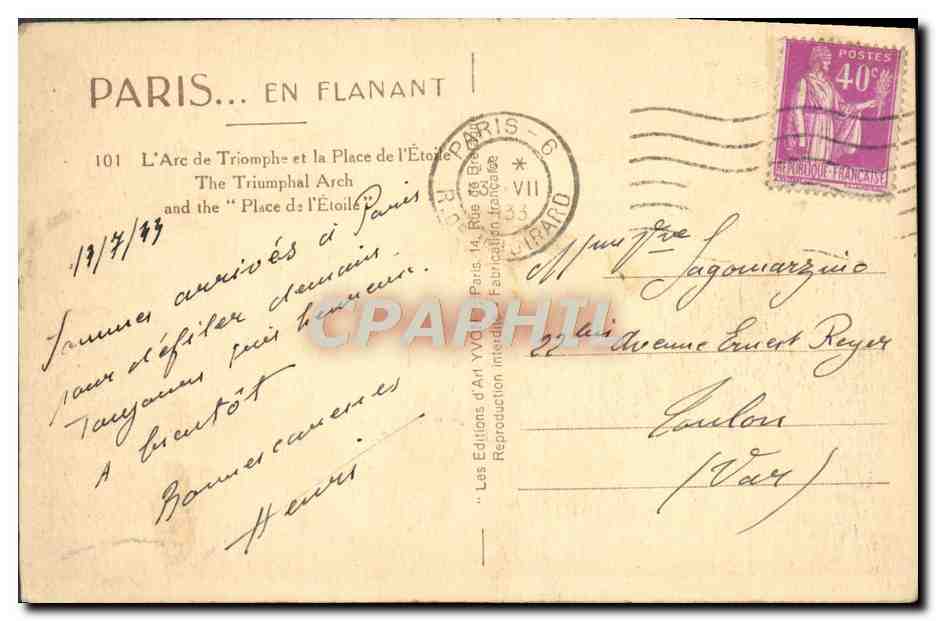 PARIS... EN FLANANT
101 L'Arc de Triomphe et la Place de l'Étoile
The Triumphal Arch
and the "Place de l'Étoile"
13/7/33
Sommes arrivés à Paris
pour défiler demain.
Toujours
A bientôt
Bonnes caresses
Henri
"Les Editions d'Art YVON" Paris. 14, Rue de Bretagne
Reproduction interdite Fabrication française
PARIS - 6
* VII
33
POSTES
40c
REPUBLIQUE-FRANÇAISE
Mme Vve
Lagomarzino
22 bis Avenue Ernest Reyer
Toulon
(Var)
CPAPHIL